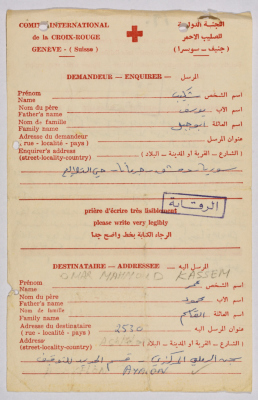 COMITÉ INTERNATIONAL
de la CROIX-ROUGE
GENEVE - (Suisse)
اللجنة الدولية
للصليب الاحمر
(جنيف - سويسرا)
DEMANDEUR — ENQUIRER — المرسل
Prénom
Name
اسم الشخص
Nom du père
Father's name
اسم الاب يوسف
Nom de famille
Family name
اسم العائلة
Adresse du demandeur
( rue - localité - pays )
عنوان المرسل
Enquirer's address
(street-locality-country)
( الشارع - القرية او المدينة - البلاد )
الرقابة
prière d'écrire très lisiblement
please write very legibly
الرجاء الكتابة بخط واضح جدا
DESTINATAIRE — ADDRESSEE — المرسل اليه
OMAR MAHMOUD KASSEM
Prénom
Name
اسم الشخص عمر
Nom du père
Father's name
اسم الاب محمود
Nom de famille
Family name
اسم العائلة القاسم
Adresse du destinataire
( rue - localité - pays )
2530 عنوان المرسل اليه
Address
(street-locality-country)
( الشارع - القرية او المدينة - البلاد )
AYALON